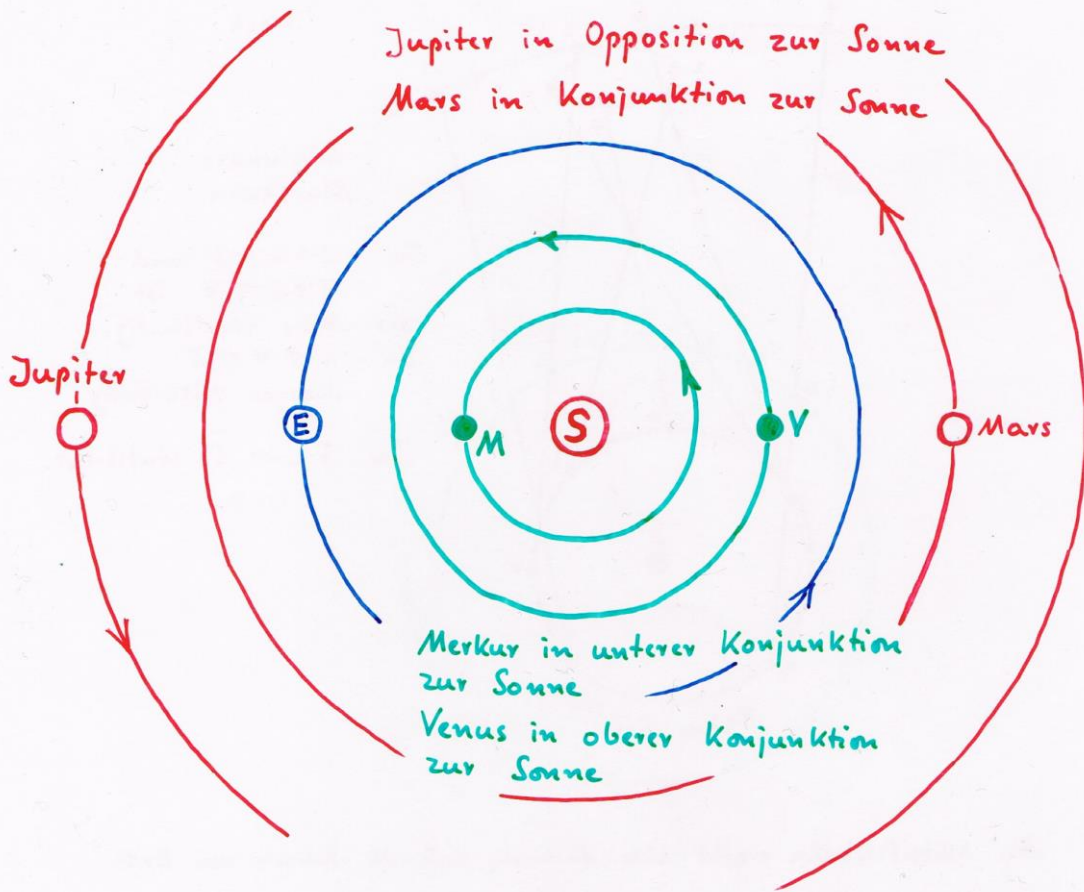 Jupiter in Opposition zur Sonne
Mars in Konjunktion zur Sonne
Jupiter
E
M
S
V
Mars
Merkur in unterer Konjunktion
zur Sonne
Venus in oberer Konjunktion
zur Sonne